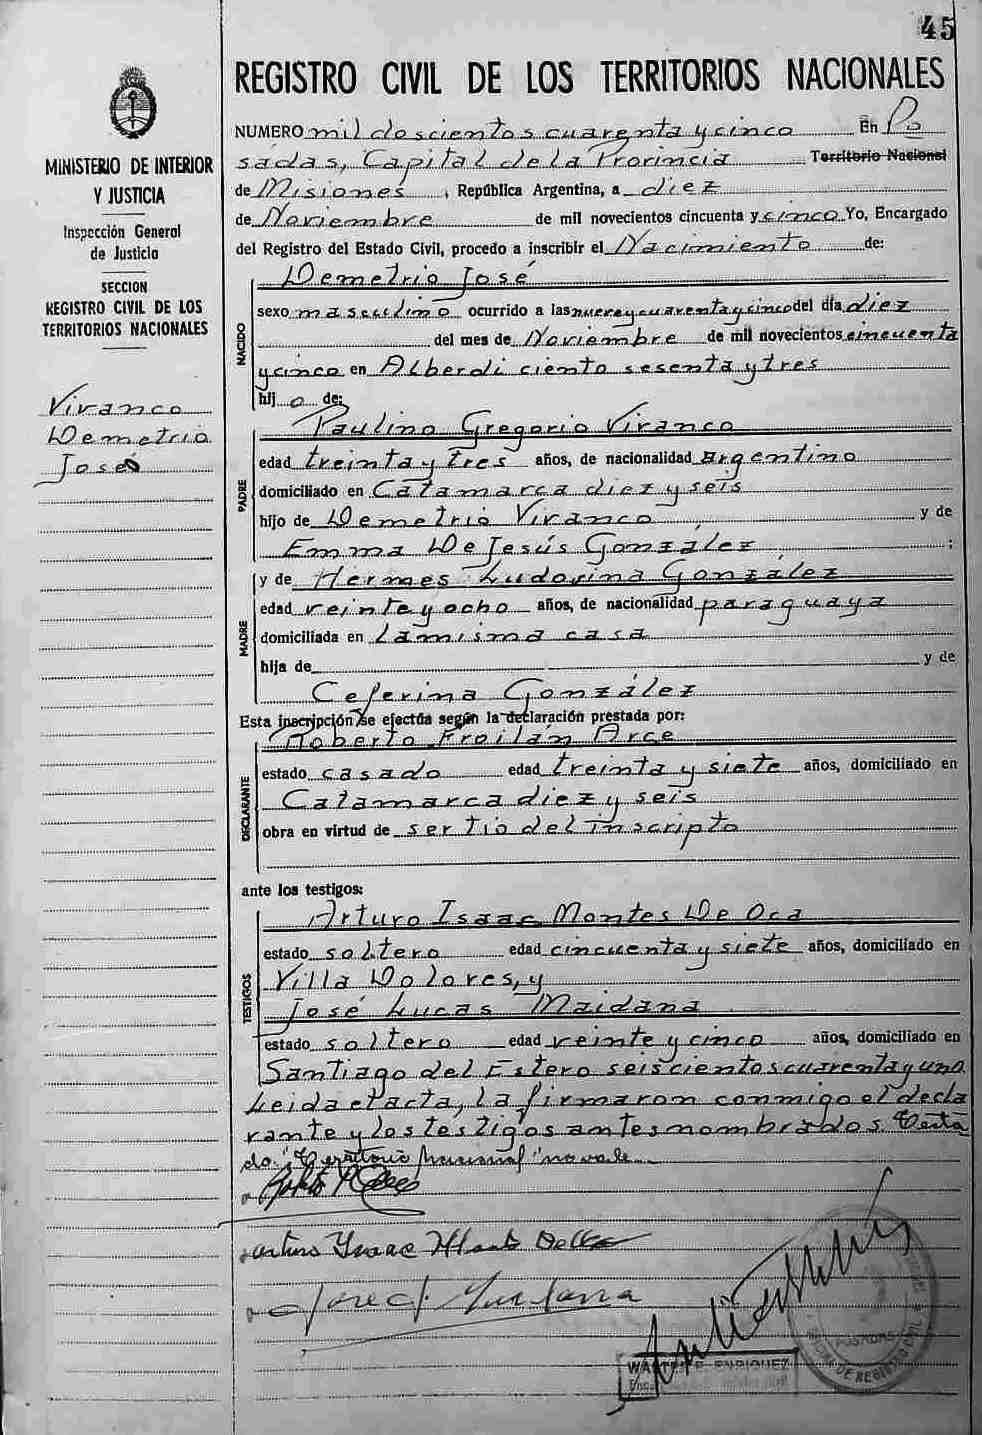 45
REGISTRO CIVIL DE LOS TERRITORIOS NACIONALES
MINISTERIO DE INTERIOR
Y JUSTICIA
Inspección General
de Justicia
SECCION
REGISTRO CIVIL DE LOS
TERRITORIOS NACIONALES
Vivanco
Demetrio
José
NUMERO mil doscientos cuarenta y cinco En Po
sadas, Capital de la Provincia Territorio Nacional
de Misiones, República Argentina, a diez
de Noviembre de mil novecientos cincuenta y cinco Yo, Encargado
del Registro del Estado Civil, procedo a inscribir el Nacimiento de:
NACIDO
Demetrio José
sexo masculino ocurrido a las nueve y cuarenta y cinco del día diez
del mes de Noviembre de mil novecientos cincuenta
y cinco en Alberdi ciento sesenta y tres
hij o de:
PADRE
Paulino Gregorio Vivanco
edad treinta y tres años, de nacionalidad argentino
domiciliado en Catamarca diez y seis
hijo de Demetrio Vivanco y de
Emma De Jesús González ;
MADRE
y de Hermes Ludovina González
edad veinte y ocho años, de nacionalidad paraguaya
domiciliada en la misma casa
hija de y de
Ceferina González
Esta inscripción se efectúa según la declaración prestada por:
DECLARANTE
Roberto Froilán Arce
estado casado edad treinta y siete años, domiciliado en
Catamarca diez y seis
obra en virtud de ser tío del inscripto
ante los testigos:
TESTIGOS
Arturo Isaac Montes De Oca
estado soltero edad cincuenta y siete años, domiciliado en
Villa Dolores, y
José Lucas Maidana
estado soltero edad veinte y cinco años, domiciliado en
Santiago del Estero seiscientos cuarenta y uno
Leida el acta, la firmaron conmigo el decla
rante y los testigos antes nombrados. Testa
do: "Territorio Nacional" no vale.
Arturo Ysaac
WALTER ENRIQUEZ
POSADAS
DE REGISTRO CIVIL